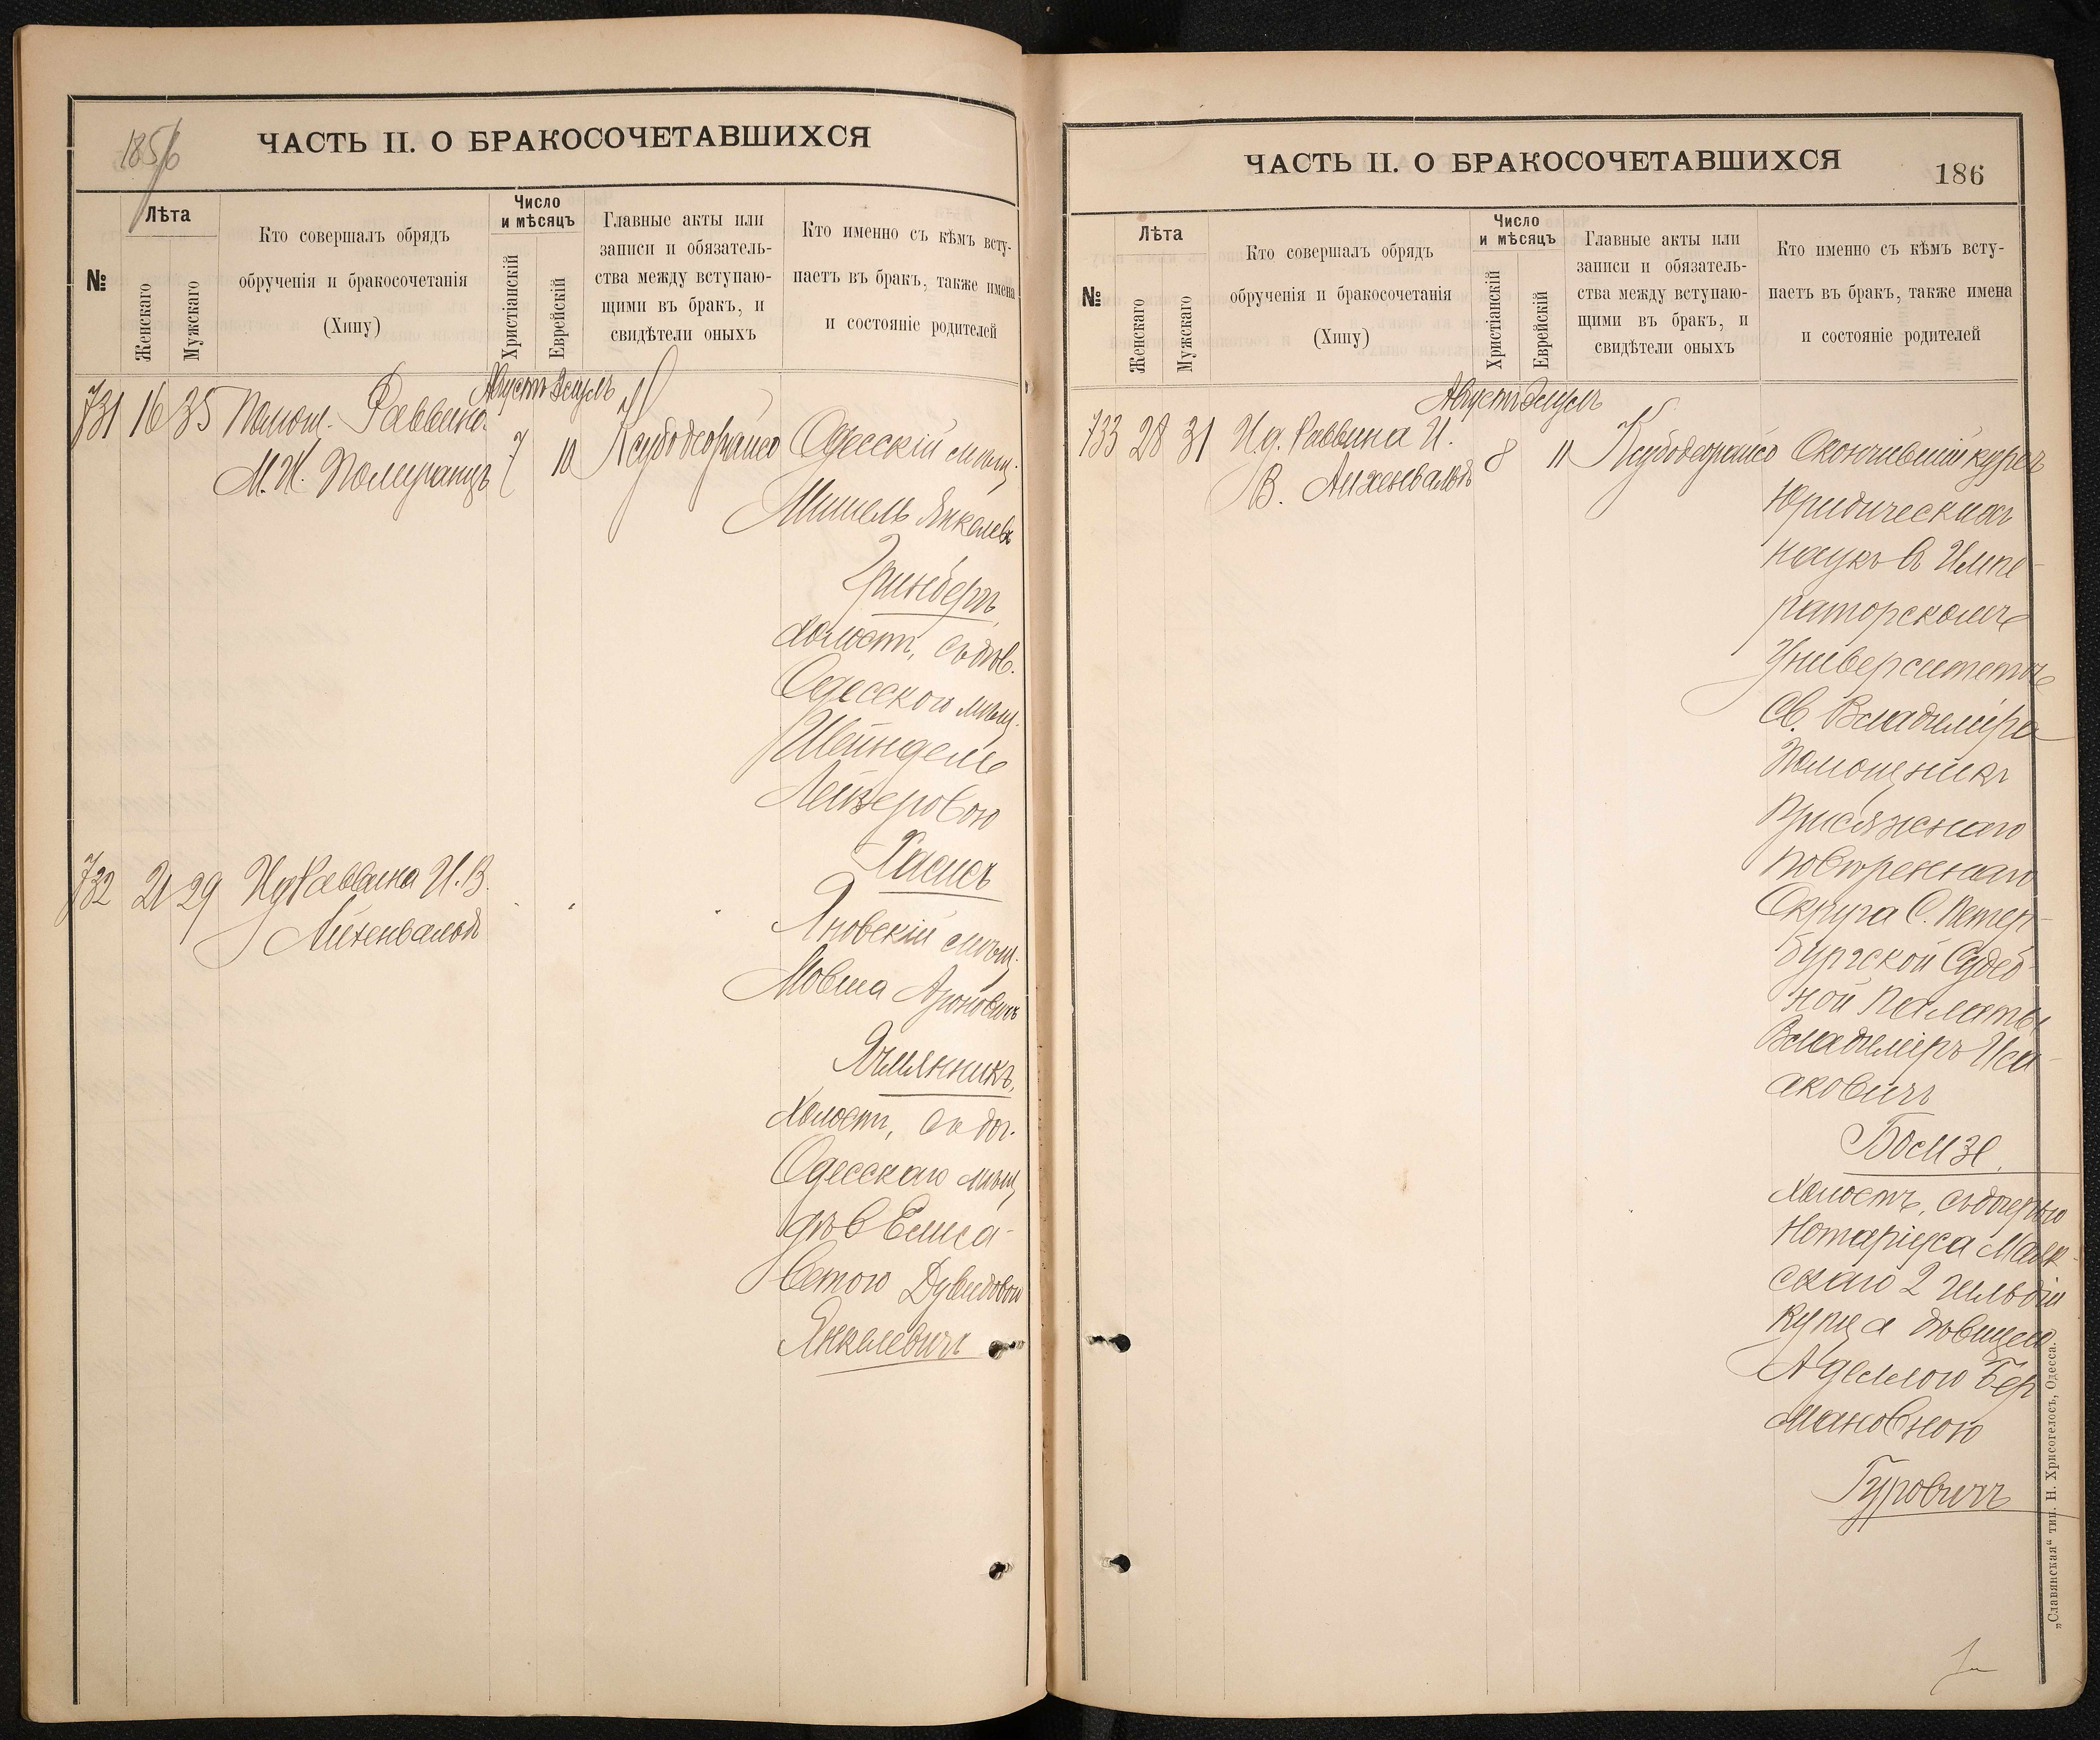 185/6
ЧАСТЬ II. О БРАКОСОЧЕТАВШИХСЯ
№
Лѣта
Женскаго
Мужскаго
Кто совершалъ обрядъ
обрученія и бракосочетанія
(Хипу)
Число
и мѣсяцъ
Христіанскій
Еврейскій
Главные акты или
записи и обязатель-
ства между вступаю-
щими въ бракъ, и
свидѣтели оныхъ
Кто именно съ кѣмъ всту-
паетъ въ бракъ, также имена
и состояніе родителей
Августъ Элулъ
731 16 35 Помощ. Раввина
М. И. Померанцъ 7 10
Одесскій мѣщ.
Мишель Янкелев
Гринбергъ,
холостъ, съ дѣв.
Одесскою мѣщ.
Шейндлею
Лейзеровою
Хасисъ
732 21 29 И д Раввина И. В.
Айхенвальдъ
Яновскій мѣщ.
Мовша Ароновичъ
Ячмянникъ,
холостъ, съ доч.
Одесскаго мѣщ.
дѣв Елиса-
ветою Дувидовою
Янкелевичъ
ЧАСТЬ II. О БРАКОСОЧЕТАВШИХСЯ
186
№
Лѣта
Женскаго
Мужскаго
Кто совершалъ обрядъ
обрученія и бракосочетанія
(Хипу)
Число
и мѣсяцъ
Христіанскій
Еврейскій
Главные акты или
записи и обязатель-
ства между вступаю-
щими въ бракъ, и
свидѣтели оныхъ
Кто именно съ кѣмъ всту-
паетъ въ бракъ, также имена
и состояніе родителей
Августъ Элулъ
733 28 31 И. д. Раввина И.
В. Айхенвальдъ 8 11
Окончившій курсъ
Юридическихъ
наукъ въ Импе-
раторскомъ
Университетѣ
Св. Владиміра
Помощникъ
Присяжнаго
повѣреннаго
Округа С. Петер-
бургской Судеб-
ной Палаты
Владиміръ Иса-
аковичъ
Бомзе,
холостъ, съ дочерью
Нотаріуса Маяк-
скаго 2 гильдіи
купца дѣвицею
Аделлою Гер
мановною
Гуровичъ
„Славянская“ тип. Н. Хрисогелосъ, Одесса.